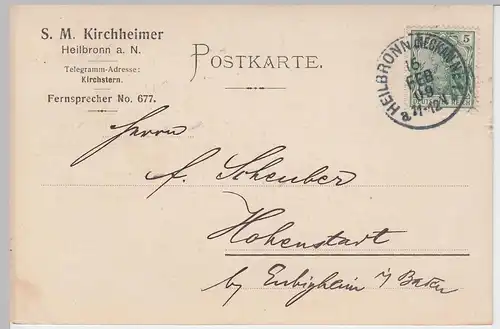 S. M. Kirchheimer
Heilbronn a. N.
Telegramm-Adresse:
Kirchstern.
Fernsprecher No. 677.
POSTKARTE.
5
HEILBRONN
15
FEB
09
11-12V
Herrn
A. Scheuber
Hohenstadt
by Eubigheim i/ Baden